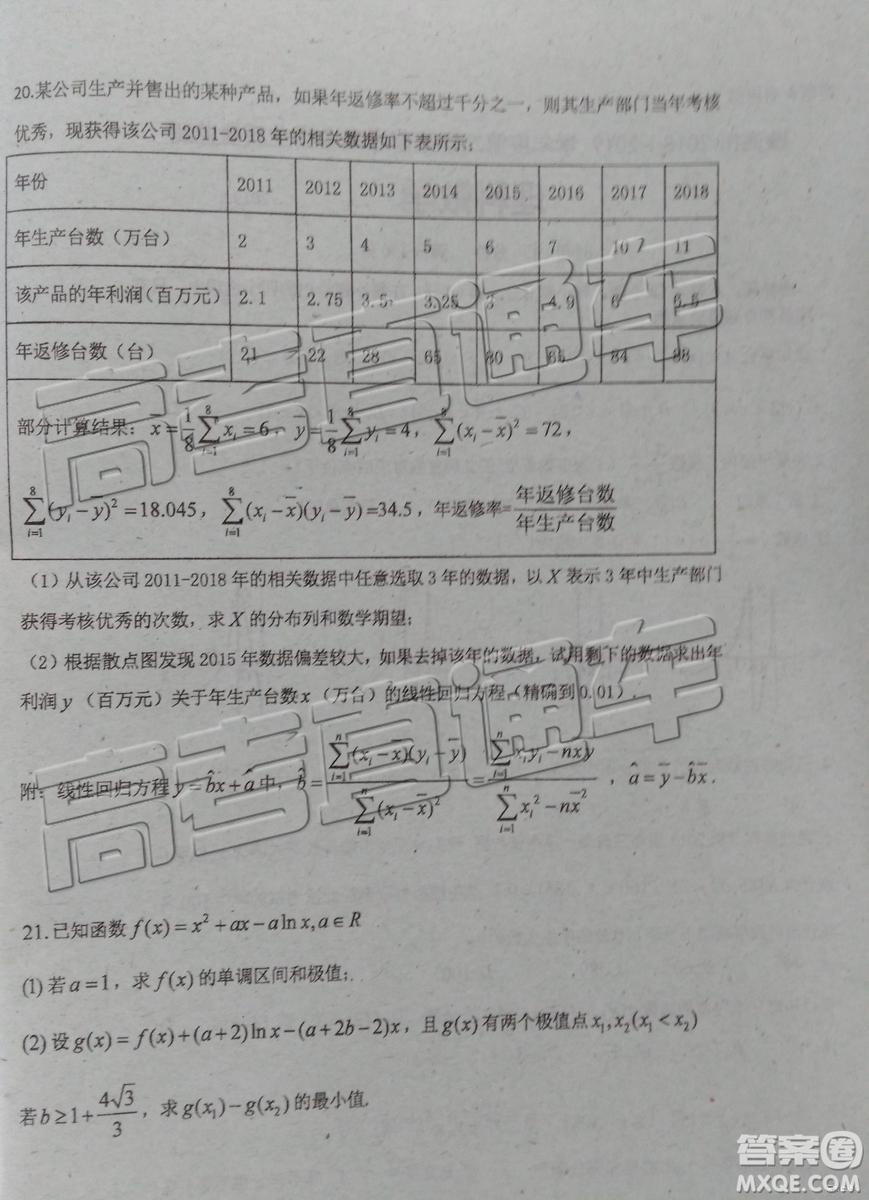 20.某公司生产并售出的某种产品，如果年返修率不超过千分之一，则其生产部门当年考核
优秀，现获得该公司 2011-2018 年的相关数据如下表所示：
年份 2011 2012 2013 2014 2015 2016 2017 2018
年生产台数（万台） 2 3 4 5 6 7 10 11
该产品的年利润（百万元） 2.1 2.75 3.5 3.25 3 4.9 6 6.5
年返修台数（台） 21 22 28 65 80 65 84 88
部分计算结果：x̄=1/8∑_{i=1}^{8}x_i=6，ȳ=1/8∑_{i=1}^{8}y_i=4，∑_{i=1}^{8}(x_i-x̄)²=72，
∑_{i=1}^{8}(y_i-ȳ)²=18.045，∑_{i=1}^{8}(x_i-x̄)(y_i-ȳ)=34.5，年返修率=年返修台数/年生产台数
（1）从该公司 2011-2018 年的相关数据中任意选取 3 年的数据，以 X 表示 3 年中生产部门
获得考核优秀的次数，求 X 的分布列和数学期望；
（2）根据散点图发现 2015 年数据偏差较大，如果去掉该年的数据，试用剩下的数据求出年
利润 y （百万元）关于年生产台数 x （万台）的线性回归方程（精确到 0.01）.
附：线性回归方程 ŷ=b̂x+â 中，b̂=∑_{i=1}^{n}(x_i-x̄)(y_i-ȳ)/∑_{i=1}^{n}(x_i-x̄)²=∑_{i=1}^{n}x_iy_i-nx̄ȳ/∑_{i=1}^{n}x_i²-nx̄²，â=ȳ-b̂x̄.
21.已知函数 f(x)=x²+ax-alnx,a∈R
(1) 若 a=1，求 f(x) 的单调区间和极值；
(2) 设 g(x)=f(x)+(a+2)lnx-(a+2b-2)x，且 g(x) 有两个极值点 x₁,x₂(x₁<x₂)
若 b≥1+4√3/3，求 g(x₁)-g(x₂) 的最小值.
高考直通车
高考直通车
答案圈
MXQE.COM